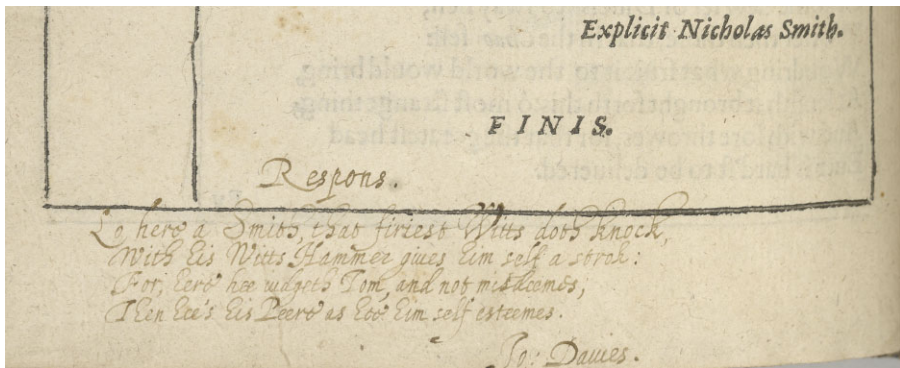 Explicit Nicholas Smith.
FINIS.
Respons.
Lo here a Smith, that firiest Witts doth knock,
With his Witts Hammer giues him self a strok:
For, here hee iudgeth Tom, and not misdeemes,
Then hee's his Peere as hee him self esteemes.
Io: Dauies.